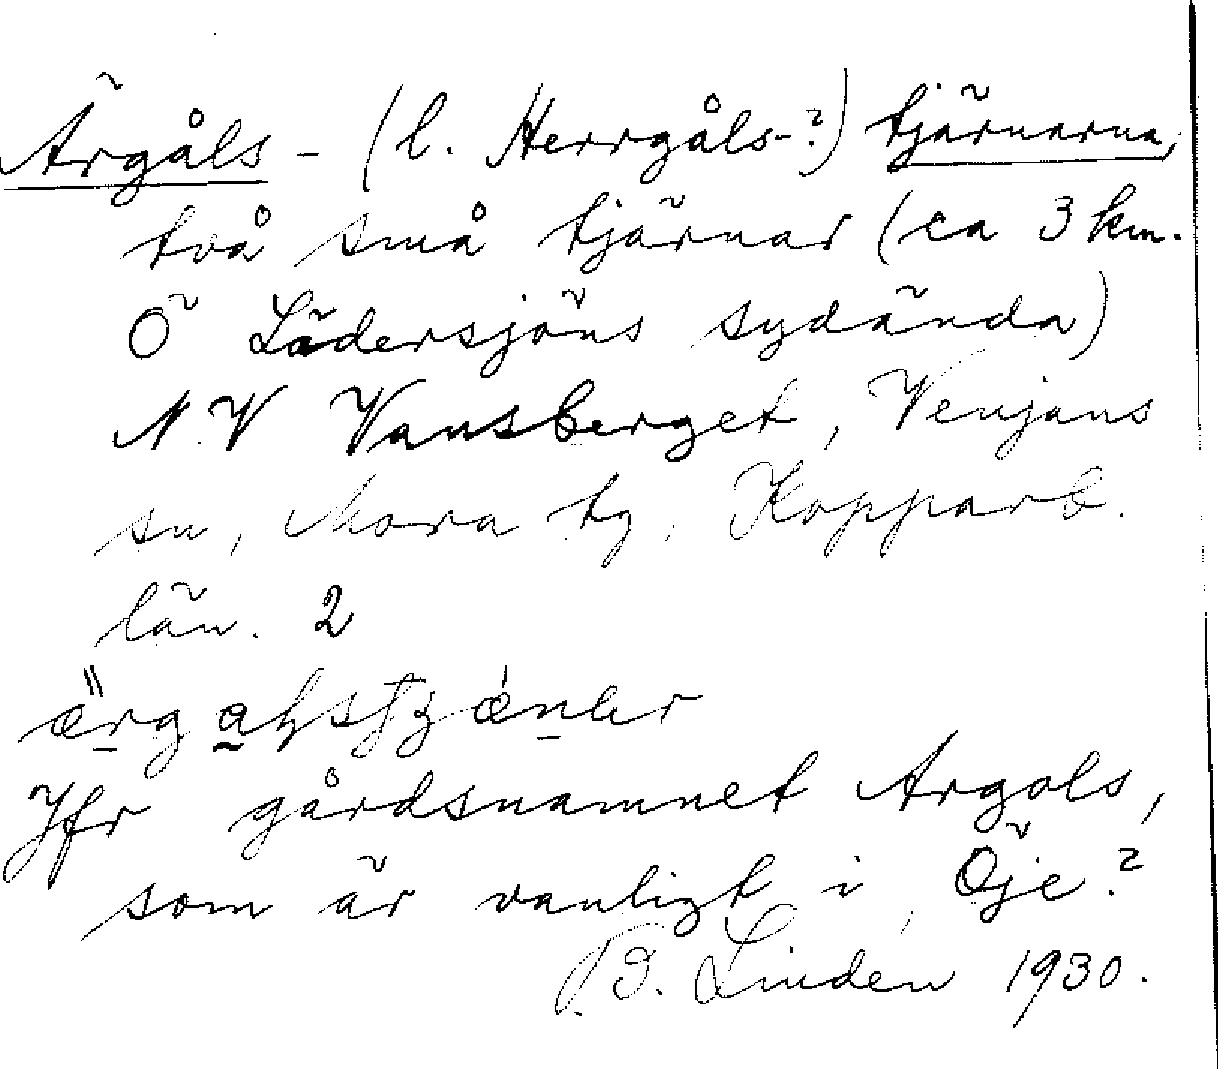 Ärgåls - (l. Herrgåls-?) tjärnarna,
två små tjärnar (ca 3 km.
Ö Lädersjöns sydända)
N.V Vansberget, Venjans
sn, Mora tg, Kopparb.
län. 2
Jfr gårdsnamnet Argols,
som är vanligt i Öje?
B. Linden 1930.